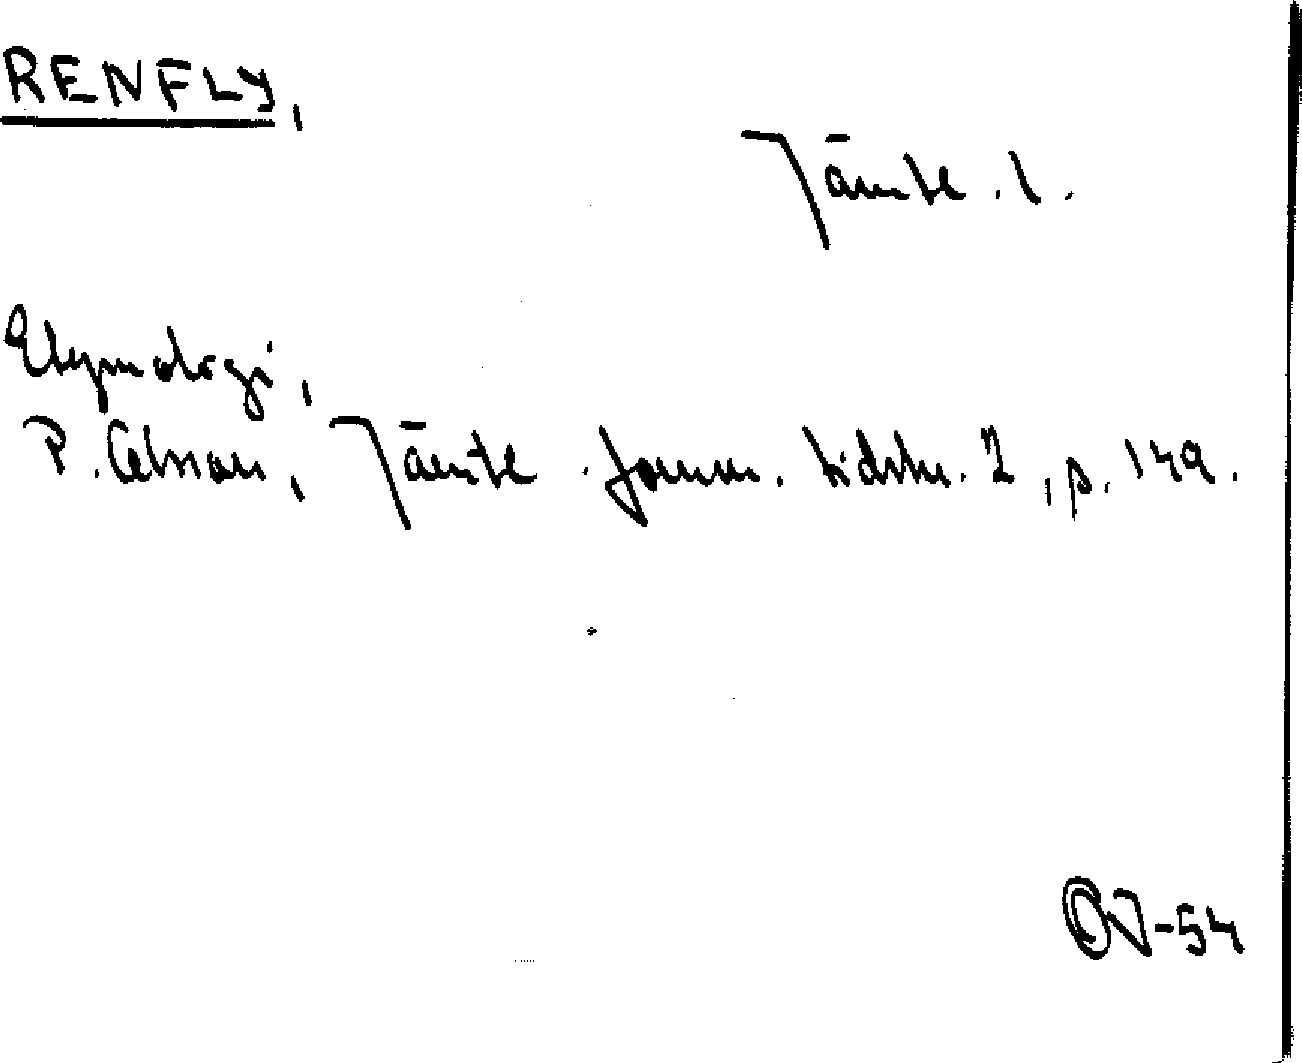 RENFLY,
Jämtl. l.
Etymologi,
P. Olsson, Jämtl. fornm. tidskr. 2, p. 149.
OJ-54